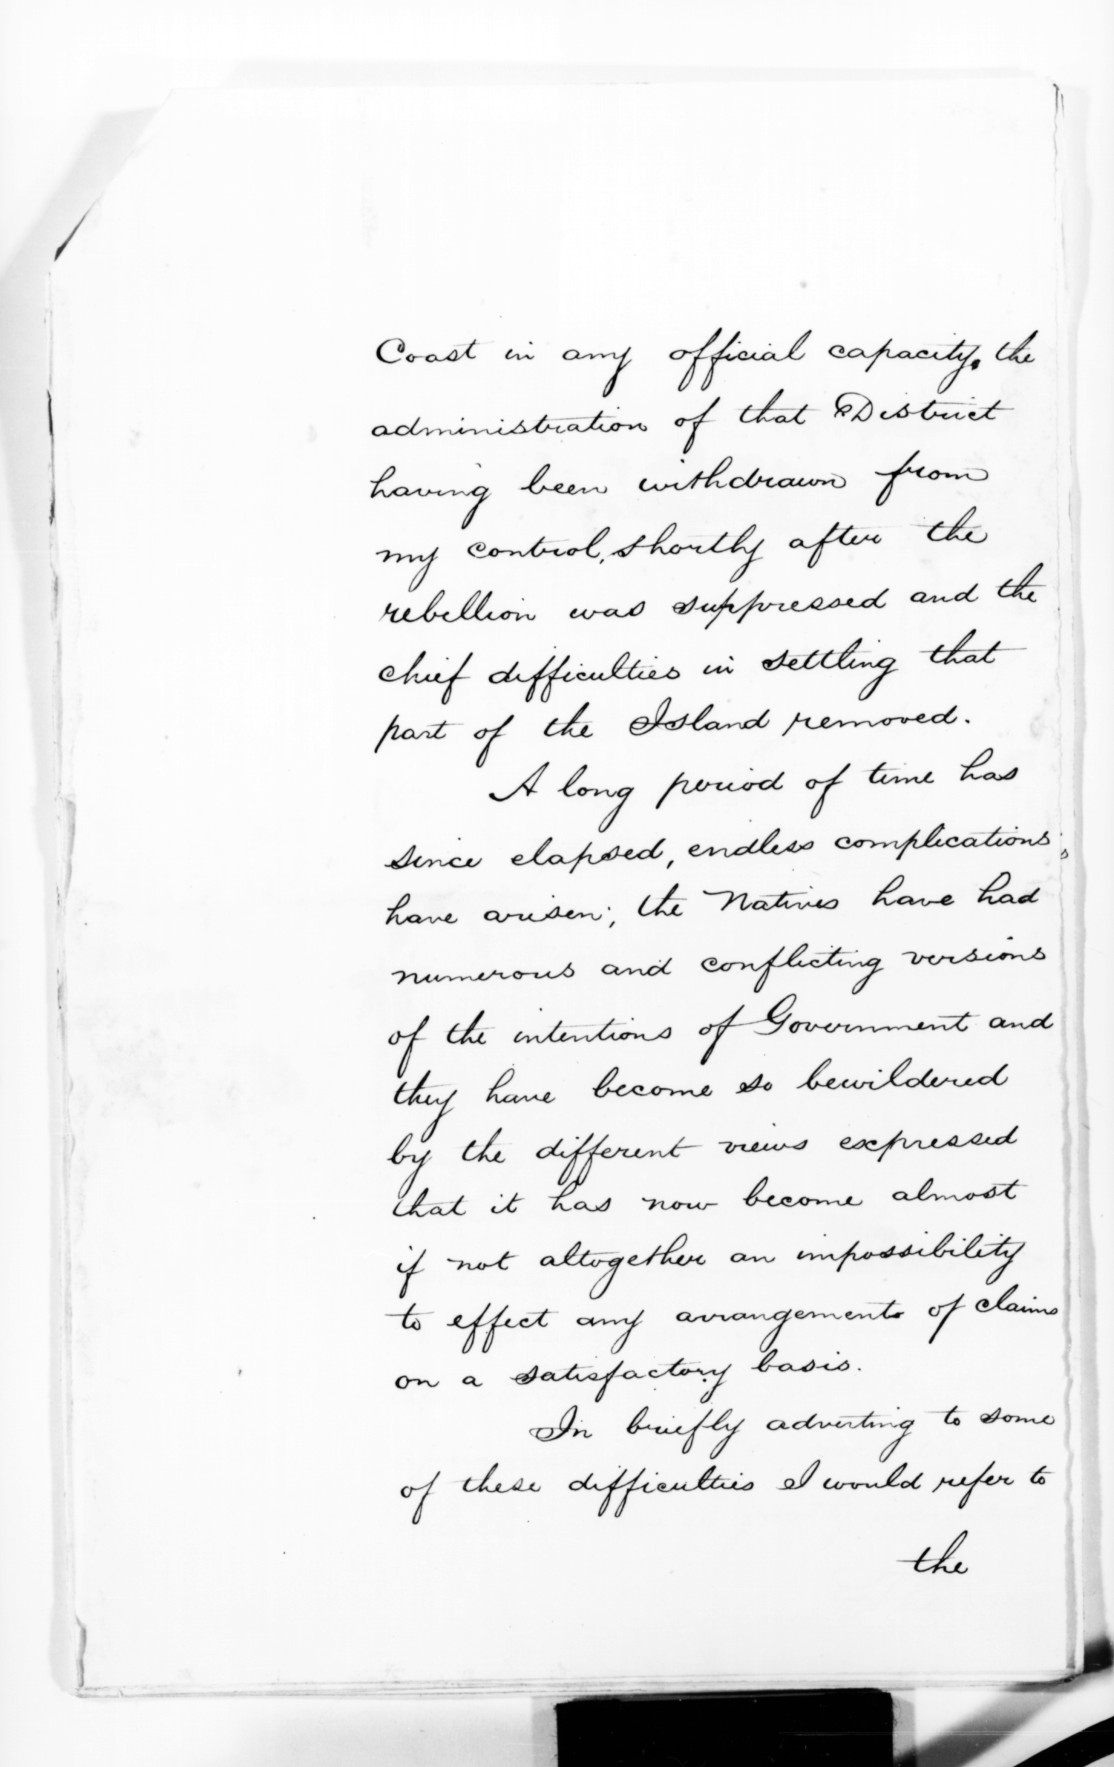 Coast in any official capacity, the
administration of that District
having been withdrawn from
my control, shortly after the
rebellion was suppressed and the
chief difficulties in settling that
part of the Island removed.
A long period of time has
since elapsed, endless complications,
have arisen; the Natives have had
numerous and conflicting versions
of the intentions of Government and
they have become so bewildered
by the different views expressed
that it has now become almost
if not altogether an impossibility
to effect any arrangements of claims
on a satisfactory basis.
In briefly adverting to some
of these difficulties I would refer to
the